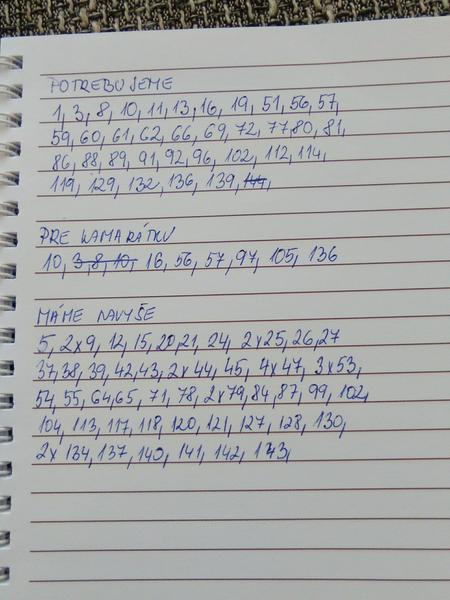 POTREBUJEME
1, 3, 8, 10, 11, 13, 16, 19, 51, 56, 57,
59, 60, 61, 62, 66, 69, 72, 77, 80, 81,
86, 88, 89, 91, 92, 96, 102, 112, 114,
119, 129, 132, 136, 139, 144,
PRE KAMARÁTKU
10, 3, 8, 10, 16, 56, 57, 97, 105, 136
MÁME NAVYŠE
5, 2x9, 12, 15, 20, 21, 24, 2x25, 26, 27
37, 38, 39, 42, 43, 2x44, 45, 4x47, 3x53,
54, 55, 64, 65, 71, 78, 2x79, 84, 87, 99, 102,
104, 113, 117, 118, 120, 121, 127, 128, 130,
2x134, 137, 140, 141, 142, 143,